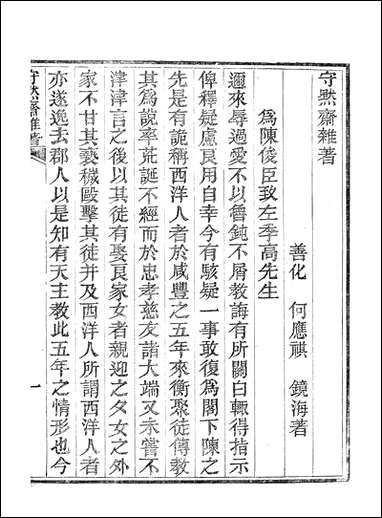 守默齋雜著
善化 何應祺 鏡海著
為陳俊臣致左季高先生
邇來辱過愛不以魯鈍不屑教誨有所關白輒得指示
俾釋疑慮良用自幸今有駭疑一事敢復為閣下陳之
先是有詭稱西洋人者於咸豐之五年來衡聚徒傳教
其為說率荒誕不經而於忠孝慈友諸大端又未嘗不
津津言之後以其徒有娶良家女者親迎之夕女之外
家不甘其褻穢毆擊其徒并及西洋人所謂西洋人者
亦遂逸去郡人以是知有天主教此五年之情形也今
守默齋雜著
一